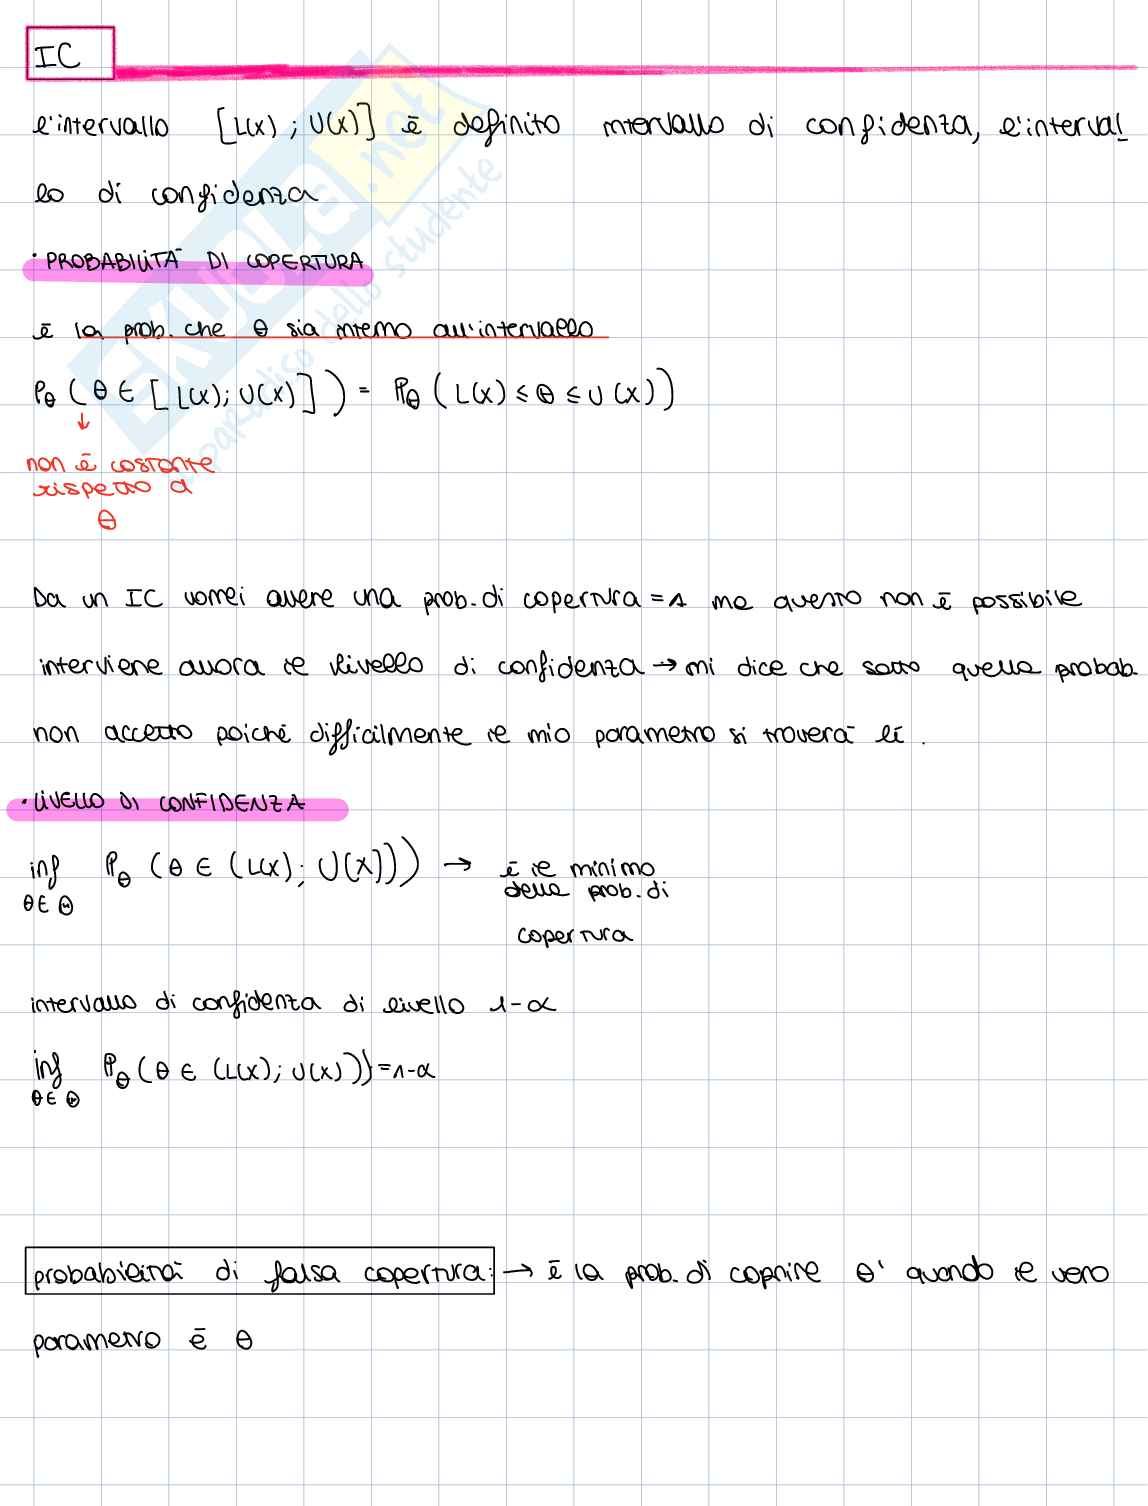 IC
l'intervallo [L(x) ; U(x)] è definito intervallo di confidenza, l'interval
lo di confidenza
· PROBABILITÀ DI COPERTURA
è la prob. che θ sia interno all'intervallo
P_θ ( θ ∈ [ L(x); U(x) ] ) = P_θ ( L(x) ≤ θ ≤ U(x) )
↓
non è costante
rispetto a
θ
Da un IC vorrei avere una prob. di copertura = 1 ma questo non è possibile
interviene allora il livello di confidenza → mi dice che sotto quella probab.
non accetto poiché difficilmente il mio parametro si troverà lì .
· LIVELLO DI CONFIDENZA
inf P_θ ( θ ∈ ( L(x) ; U(x) ) ) → è il minimo
θ ∈ Θ della prob. di
copertura
intervallo di confidenza di livello 1-α
inf P_θ ( θ ∈ (L(x); U(x) ) ) = 1-α
θ ∈ Θ
probabilità di falsa copertura: → è la prob. di coprire θ' quando il vero
parametro è θ
SKUOLA.net
paradiso dello studente